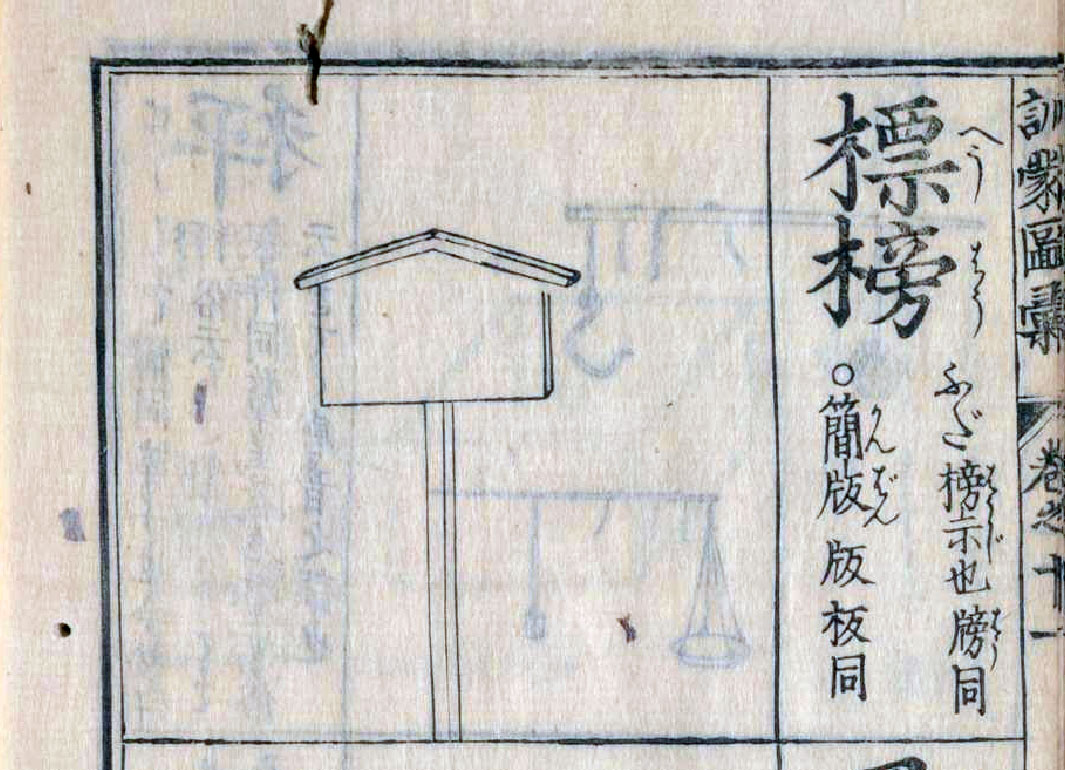 訓蒙圖彙 巻之十一
標榜
へう はう
ふだ 榜示也 牓同
はうじ はう
○簡版 版板同
かんばん